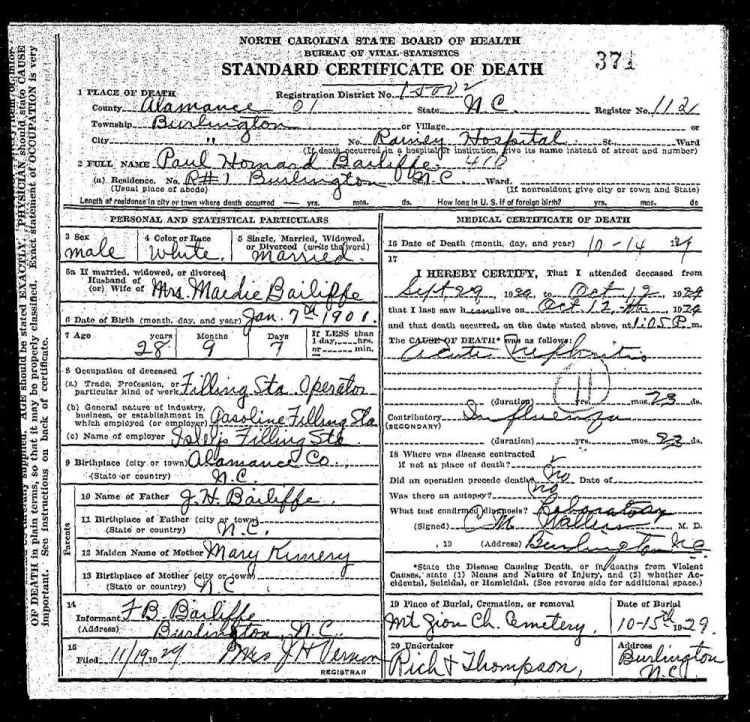 NORTH CAROLINA STATE BOARD OF HEALTH
BUREAU OF VITAL STATISTICS
STANDARD CERTIFICATE OF DEATH
371
1 PLACE OF DEATH
Registration District No.
County Alamance 01 State N.C. Register No. 1121
Township Burlington or Village or
City " No. Rainey Hospital St., Ward
(If death occurred in a hospital or institution, give its name instead of street and number)
2 FULL NAME Paul Howard Bailiffe 410
(a) Residence. No. R#1 Burlington N.C. Ward.
(Usual place of abode) (If nonresident give city or town and State)
Length of residence in city or town where death occurred yrs. mos. ds. How long in U. S. if of foreign birth? yrs. mos. ds.
PERSONAL AND STATISTICAL PARTICULARS
3 Sex
male
4 Color or Race
White
5 Single, Married, Widowed,
or Divorced (write the word)
married
5a If married, widowed, or divorced
Husband of
(or) Wife of Mrs. Maedie Bailiffe
6 Date of Birth (month, day, and year) Jan. 7th 1901.
7 Age years Months Days If LESS than
1 day, hrs.
or min.
28 9 7
8 Occupation of deceased
(a) Trade, Profession, or
particular kind of work Filling Sta. Operator
(b) General nature of industry,
business, or establishment in
which employed (or employer) Gasoline Filling Sta
(c) Name of employer Isley's Filling Sta
9 Birthplace (city or town) Alamance Co.,
(State or country) N.C.
Parents
10 Name of Father J. H. Bailiffe.
11 Birthplace of Father (city or town)
(State or country) N.C.
12 Maiden Name of Mother Mary Kimery
13 Birthplace of Mother (city or town)
(State or country) N.C
14
Informant F. B. Bailiffe
(Address) Burlington, N.C.
15
Filed 11/19 1929 Mrs J H Vernon
REGISTRAR
MEDICAL CERTIFICATE OF DEATH
16 Date of Death (month, day, and year) 10-14 1929
17
I HEREBY CERTIFY, That I attended deceased from
Sept 29, 1929, to Oct 12, 1929
that I last saw him alive on Oct 12, 1929
and that death occurred, on the date stated above, at 1:05 P. m.
The CAUSE OF DEATH* was as follows:
Acute Nephritis
11
(duration) yrs. mos. 23 ds.
Contributory Influenza
(SECONDARY)
(duration) yrs. mos. 23 ds.
18 Where was disease contracted
if not at place of death?
Did an operation precede death? no Date of
Was there an autopsy? no
What test confirmed diagnosis? Laboratory
(Signed) M. D.
, 19 (Address) Burlington N.C.
*State the Disease Causing Death, or in deaths from Violent
Causes, state (1) Means and Nature of Injury, and (2) whether Ac-
cidental, Suicidal, or Homicidal. (See reverse side for additional space.)
19 Place of Burial, Cremation, or removal Date of Burial
Mt Zion Ch. Cemetery. 10-15th 1929.
20 Undertaker Address
Rich & Thompson, Burlington
N.C.
be carefully supplied. AGE should be stated EXACTLY. PHYSICIAN should state CAUSE
OF DEATH in plain terms, so that it may be properly classified. Exact statement of OCCUPATION is very
important. See instructions on back of certificate.